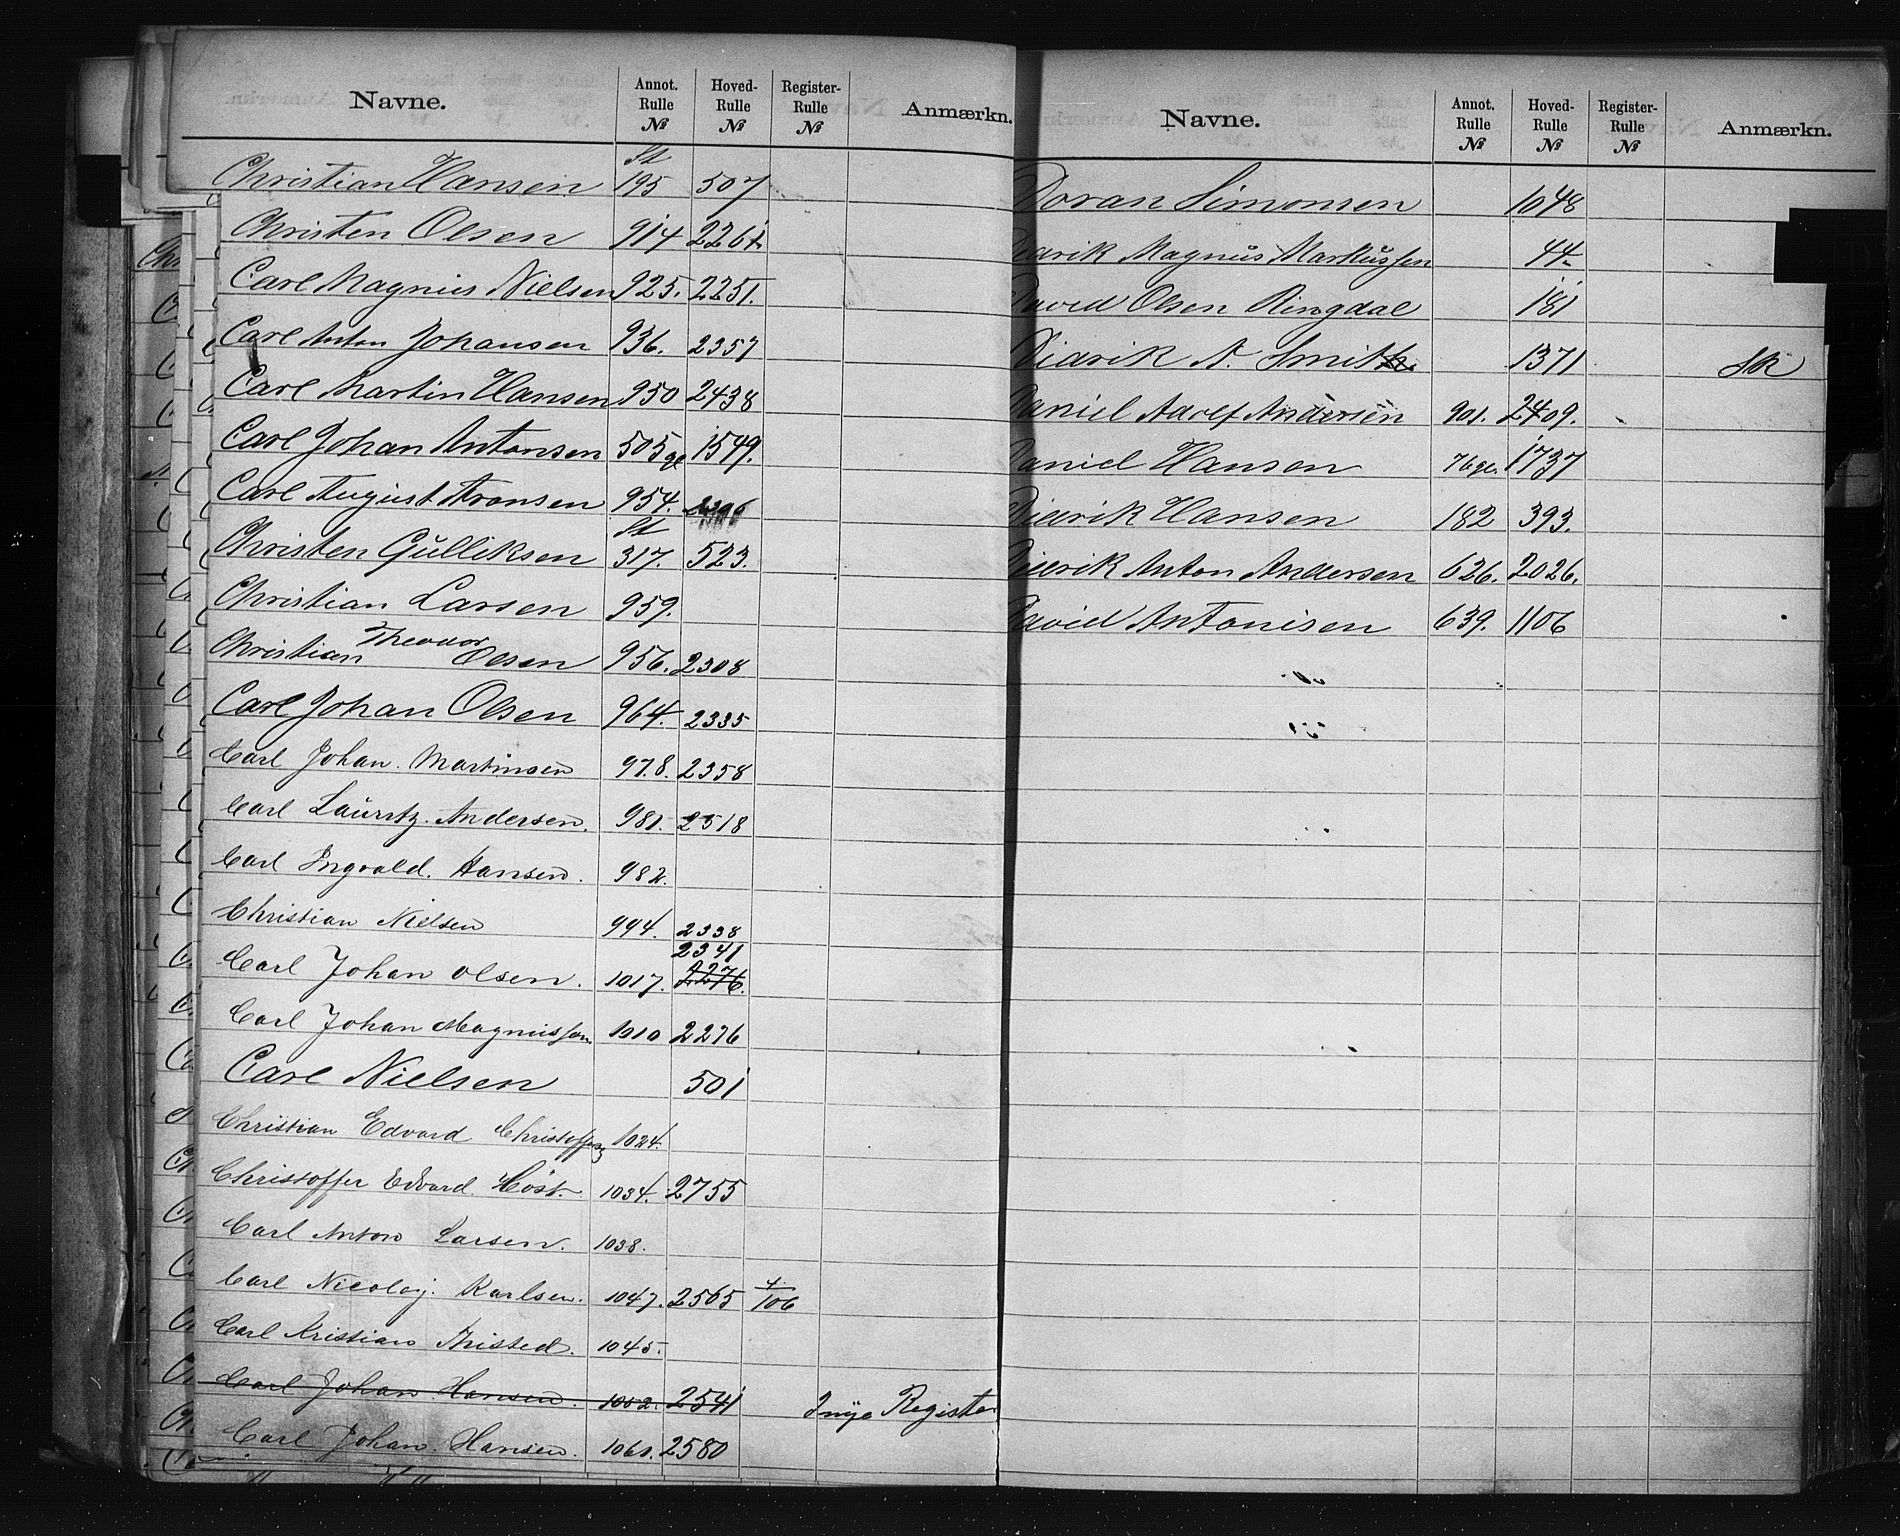 Navne. Annot. Rulle № Hoved-Rulle № Register-Rulle № Anmærkn.
Christian Hansen St 195 507
Christen Olsen 914 2261
Carl Magnus Nielsen 925. 2251.
Carl Anton Johansen 936. 2357
Carl Martin Hansen 950 2438
Carl Johan Antonsen 505 gl 1549.
Carl August Aronsen 954.
Christen Gulliksen St 317. 523.
Christian Larsen 959.
Christian Theodor Olsen 956. 2308
Carl Johan Olsen 964. 2335
Carl Johan Martinsen 978. 2358
Carl Lauritz Andersen. 981. 2518
Carl Ingvald Hansen. 982.
Christian Nielsen 994. 2338
Carl Johan Olsen. 1017. 2341 2276.
Carl Johan Magnussen 1010 2276
Carl Nielsen 501
Christian Edvard 1024.
Christoffer Edvard Höst. 1034. 2755
Carl Anton Larsen. 1038.
Carl Nicolaj Karlsen. 1047. 2565 4/106
Carl Kristian Thisted. 1045.
Carl Johan Hansen. 1052. 2541 Inye Register
Carl Johan Hansen. 1061. 2580
Navne. Annot. Rulle № Hoved-Rulle № Register-Rulle № Anmærkn.
Doran Simonsen 1048
Magnus Markussen 44
David Olsen Ringdal 181
Diedrik A. Smith 1371 Sk
Daniel Adolf Andersen 901. 2409.
Daniel Hansen 76 gl. 1737
Diedrik Hansen 182 393.
Diedrik Anton Andersen 626. 2026.
David Antonisen 639. 1106